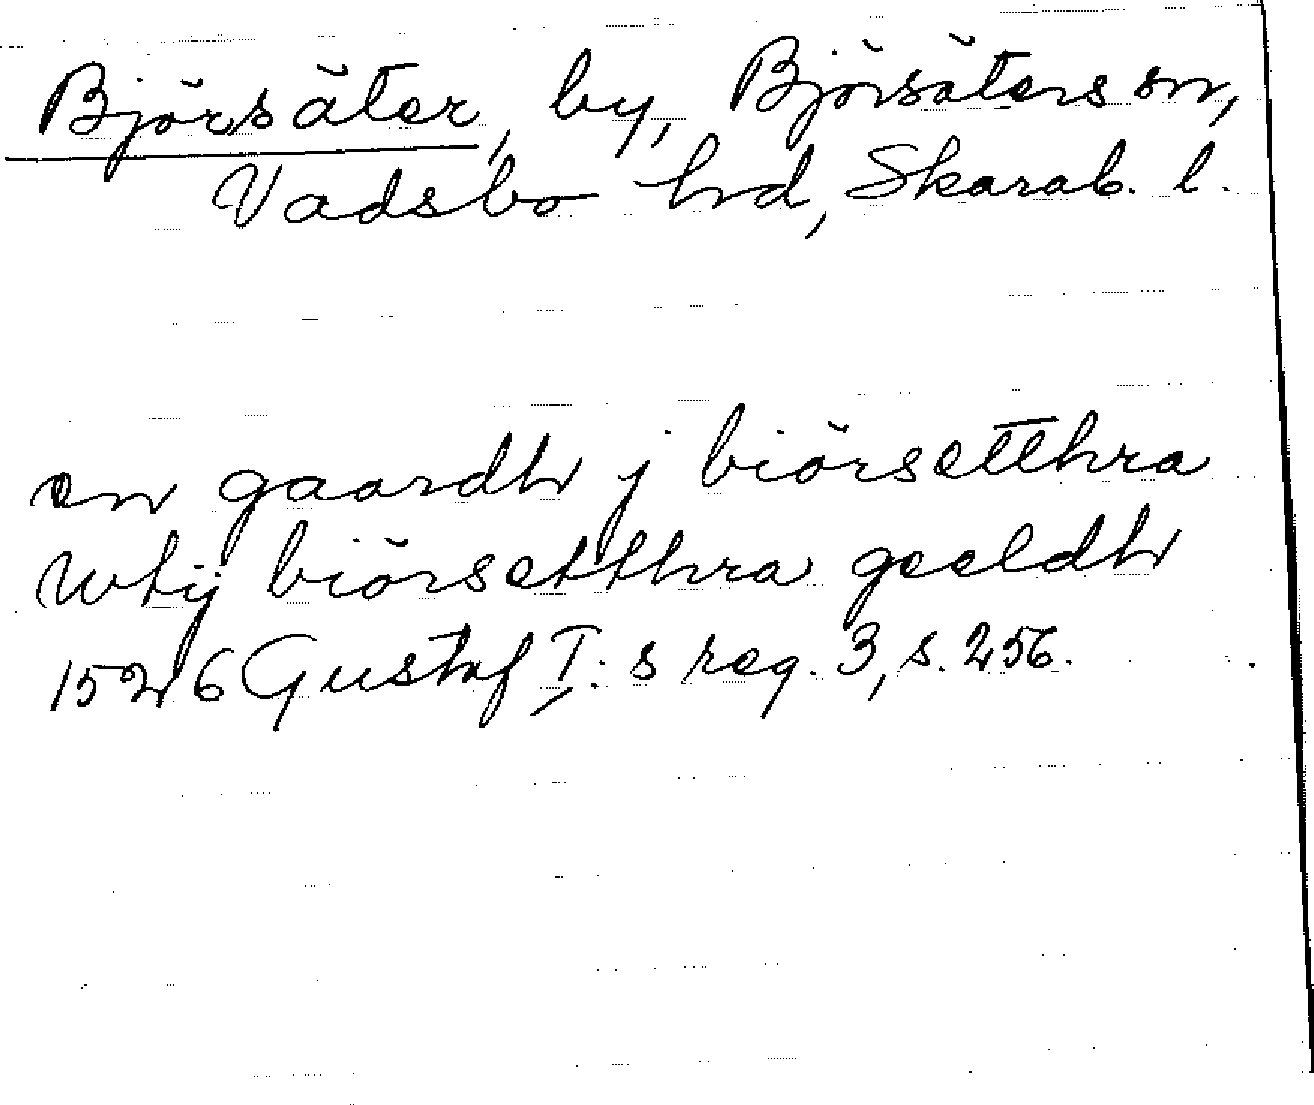 Björsäter, by, Björsäters sn,
Vadsbo hd, Skarab. l.
en gaardh j biörsetthra
wtij biörsetthra geeldh
1526 Gustaf I:s reg. 3, s. 256.